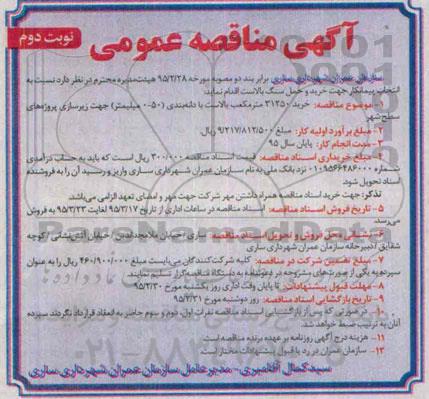 آگهی مناقصه عمومی
نوبت دوم
سازمان عمران شهرداری ساری برابر بند دو مصوبه مورخه ۹۵/۲/۲۸ هیئت‌مدیره محترم در نظر دارد نسبت به
انتخاب پیمانکار جهت خرید و حمل سنگ بالاست اقدام نماید:
۱- موضوع مناقصه: خرید ۳۱۲۵۰ مترمکعب بالاست با دانه‌بندی (۵۰-۰ میلیمتر) جهت زیرسازی پروژه‌های
سطح شهر
۲- مبلغ برآورد اولیه کار: مبلغ ۹/۲۱۷/۸۱۲/۵۰۰ ریال.
۳- مدت انجام کار: پایان سال ۹۵
۴- مبلغ خریداری اسناد مناقصه: قیمت اسناد مناقصه ۳۰۰/۰۰۰ ریال است که باید به حساب درآمدی
شماره ۰۱۰۹۵۶۶۴۸۶۰۰۰ نزد بانک ملی به نام سازمان عمران شهرداری ساری واریز و رسید آن را به فروشنده
اسناد تحویل شود.
تذکر: جهت خرید اسناد مناقصه همراه داشتن مهر شرکت جهت مهر و امضای تعهد الزامی می‌باشد.
۵- تاریخ فروش اسناد مناقصه: اسناد مناقصه در ساعات اداری از تاریخ ۹۵/۳/۱۷ لغایت ۹۵/۳/۲۳ به فروش
می‌رسد.
۶- نشانی محل فروش و تحویل اسناد مناقصه: ساری - خیابان ملامجدالدین - خیابان آتش‌نشانی - کوچه
شقایق - دبیرخانه سازمان عمران شهرداری ساری
۷- مبلغ تضمین شرکت در مناقصه: کلیه شرکت‌کنندگان می‌بایست مبلغ ۴۶۰/۹۰۰/۰۰۰ ریال را به عنوان
سپرده به یکی از صورت‌های مشروحه در دعوتنامه به دستگاه مناقصه‌گزار تسلیم نمایند.
۸- مهلت قبول پیشنهادات: تا پایان وقت اداری روز یکشنبه مورخ ۹۵/۳/۳۰
۹- تاریخ بازگشایی اسناد مناقصه: روز دوشنبه مورخ ۹۵/۳/۳۱
در صورتی که پس از بازگشایی اسناد مناقصه نفرات اول، دوم و سوم حاضر به انعقاد قرارداد نگردند سپرده
آنان به ترتیب ضبط خواهد شد.
۱۱- هزینه درج آگهی روزنامه بر عهده برنده مناقصه است.
۱۲- سازمان عمران در رد یا قبول پیشنهادات مختار است.
سید کمال آقامیری - مدیرعامل سازمان عمران شهرداری ساری